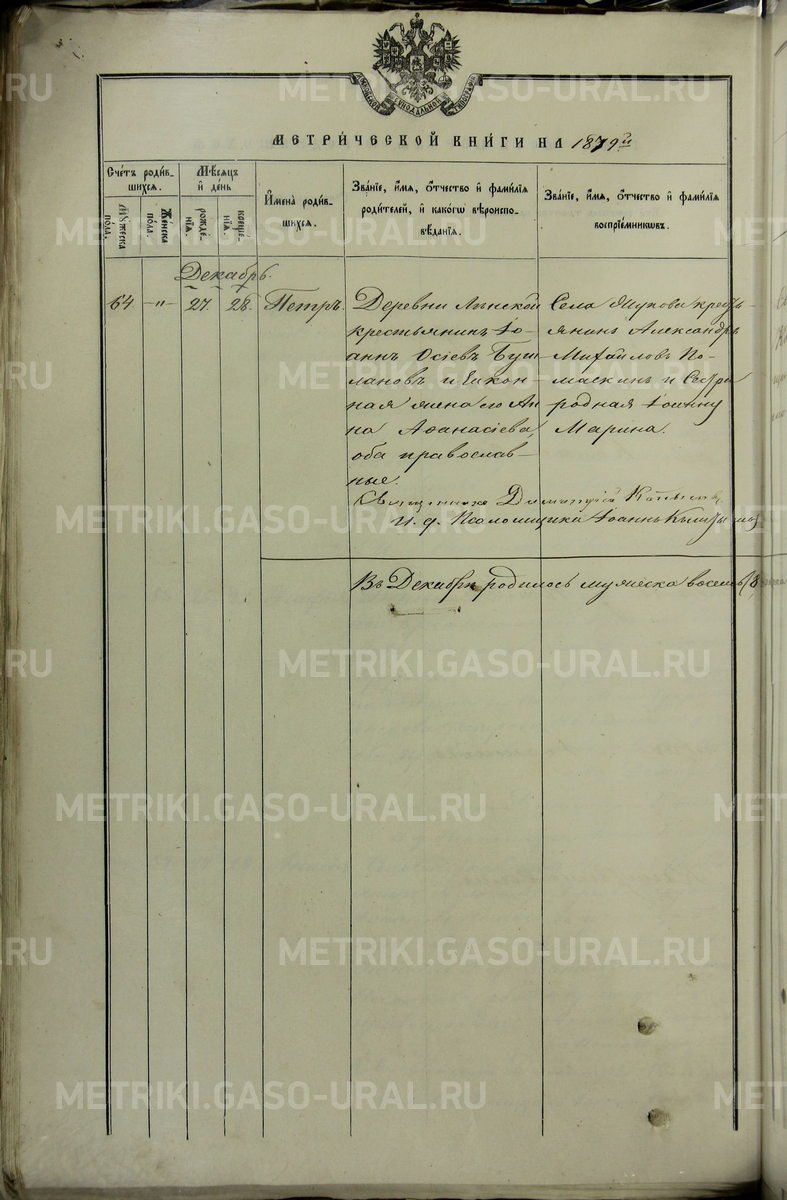 МОСКОВСКОЙ СѴНОДАЛЬНОЙ ТИПОГРАФІИ
МЕТРИ́ЧЕСКОЙ КНИ́ГИ НА 1879й
Сче́тъ роди́в-
шихся.
Мѣ́сяцъ
и҆ де́нь
И҆мена̀ роди́в-
шихся.
Зва́нїе, и҆́мя, ѻ҆́тчество и҆ фами́лїя
роди́телей, и҆ како́гѡ вѣ̀роиспо-
вѣ́данїя.
Зва́нїе, и҆́мя, ѻ҆́тчество и҆ фами́лїя
воспрїе́мникѡвъ.
Мꙋ́жеска
по́ла.
Же́нска
по́ла.
рожде́-
нїя.
креще́-
нїя.
Декабрь.
64 -"- 27. 28. Петръ.
Деревни
крестьянинъ Іо-
аннъ Осіевъ Буш-
лановъ и Закон-
ная жена его Ан
на Аѳанасіева,
оба православ-
ные.
Села крестъ-
янинъ Александръ
Михайловъ По-
маскинъ и Сестра
родная Іоанну
Марина.
Священникъ Димитрій
И. д. Псаломщика Іоаннъ
Въ Декабрѣ родилось мужеска восемь (8
METRIKI.GASO-URAL.RU